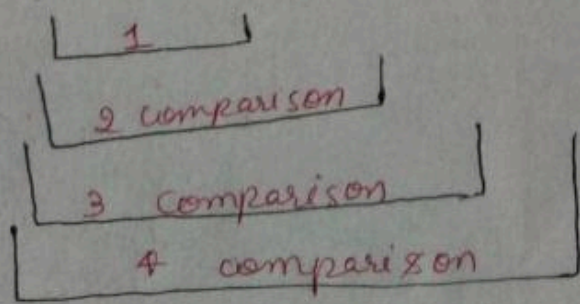 1
2 comparison
3 comparison
4 comparison